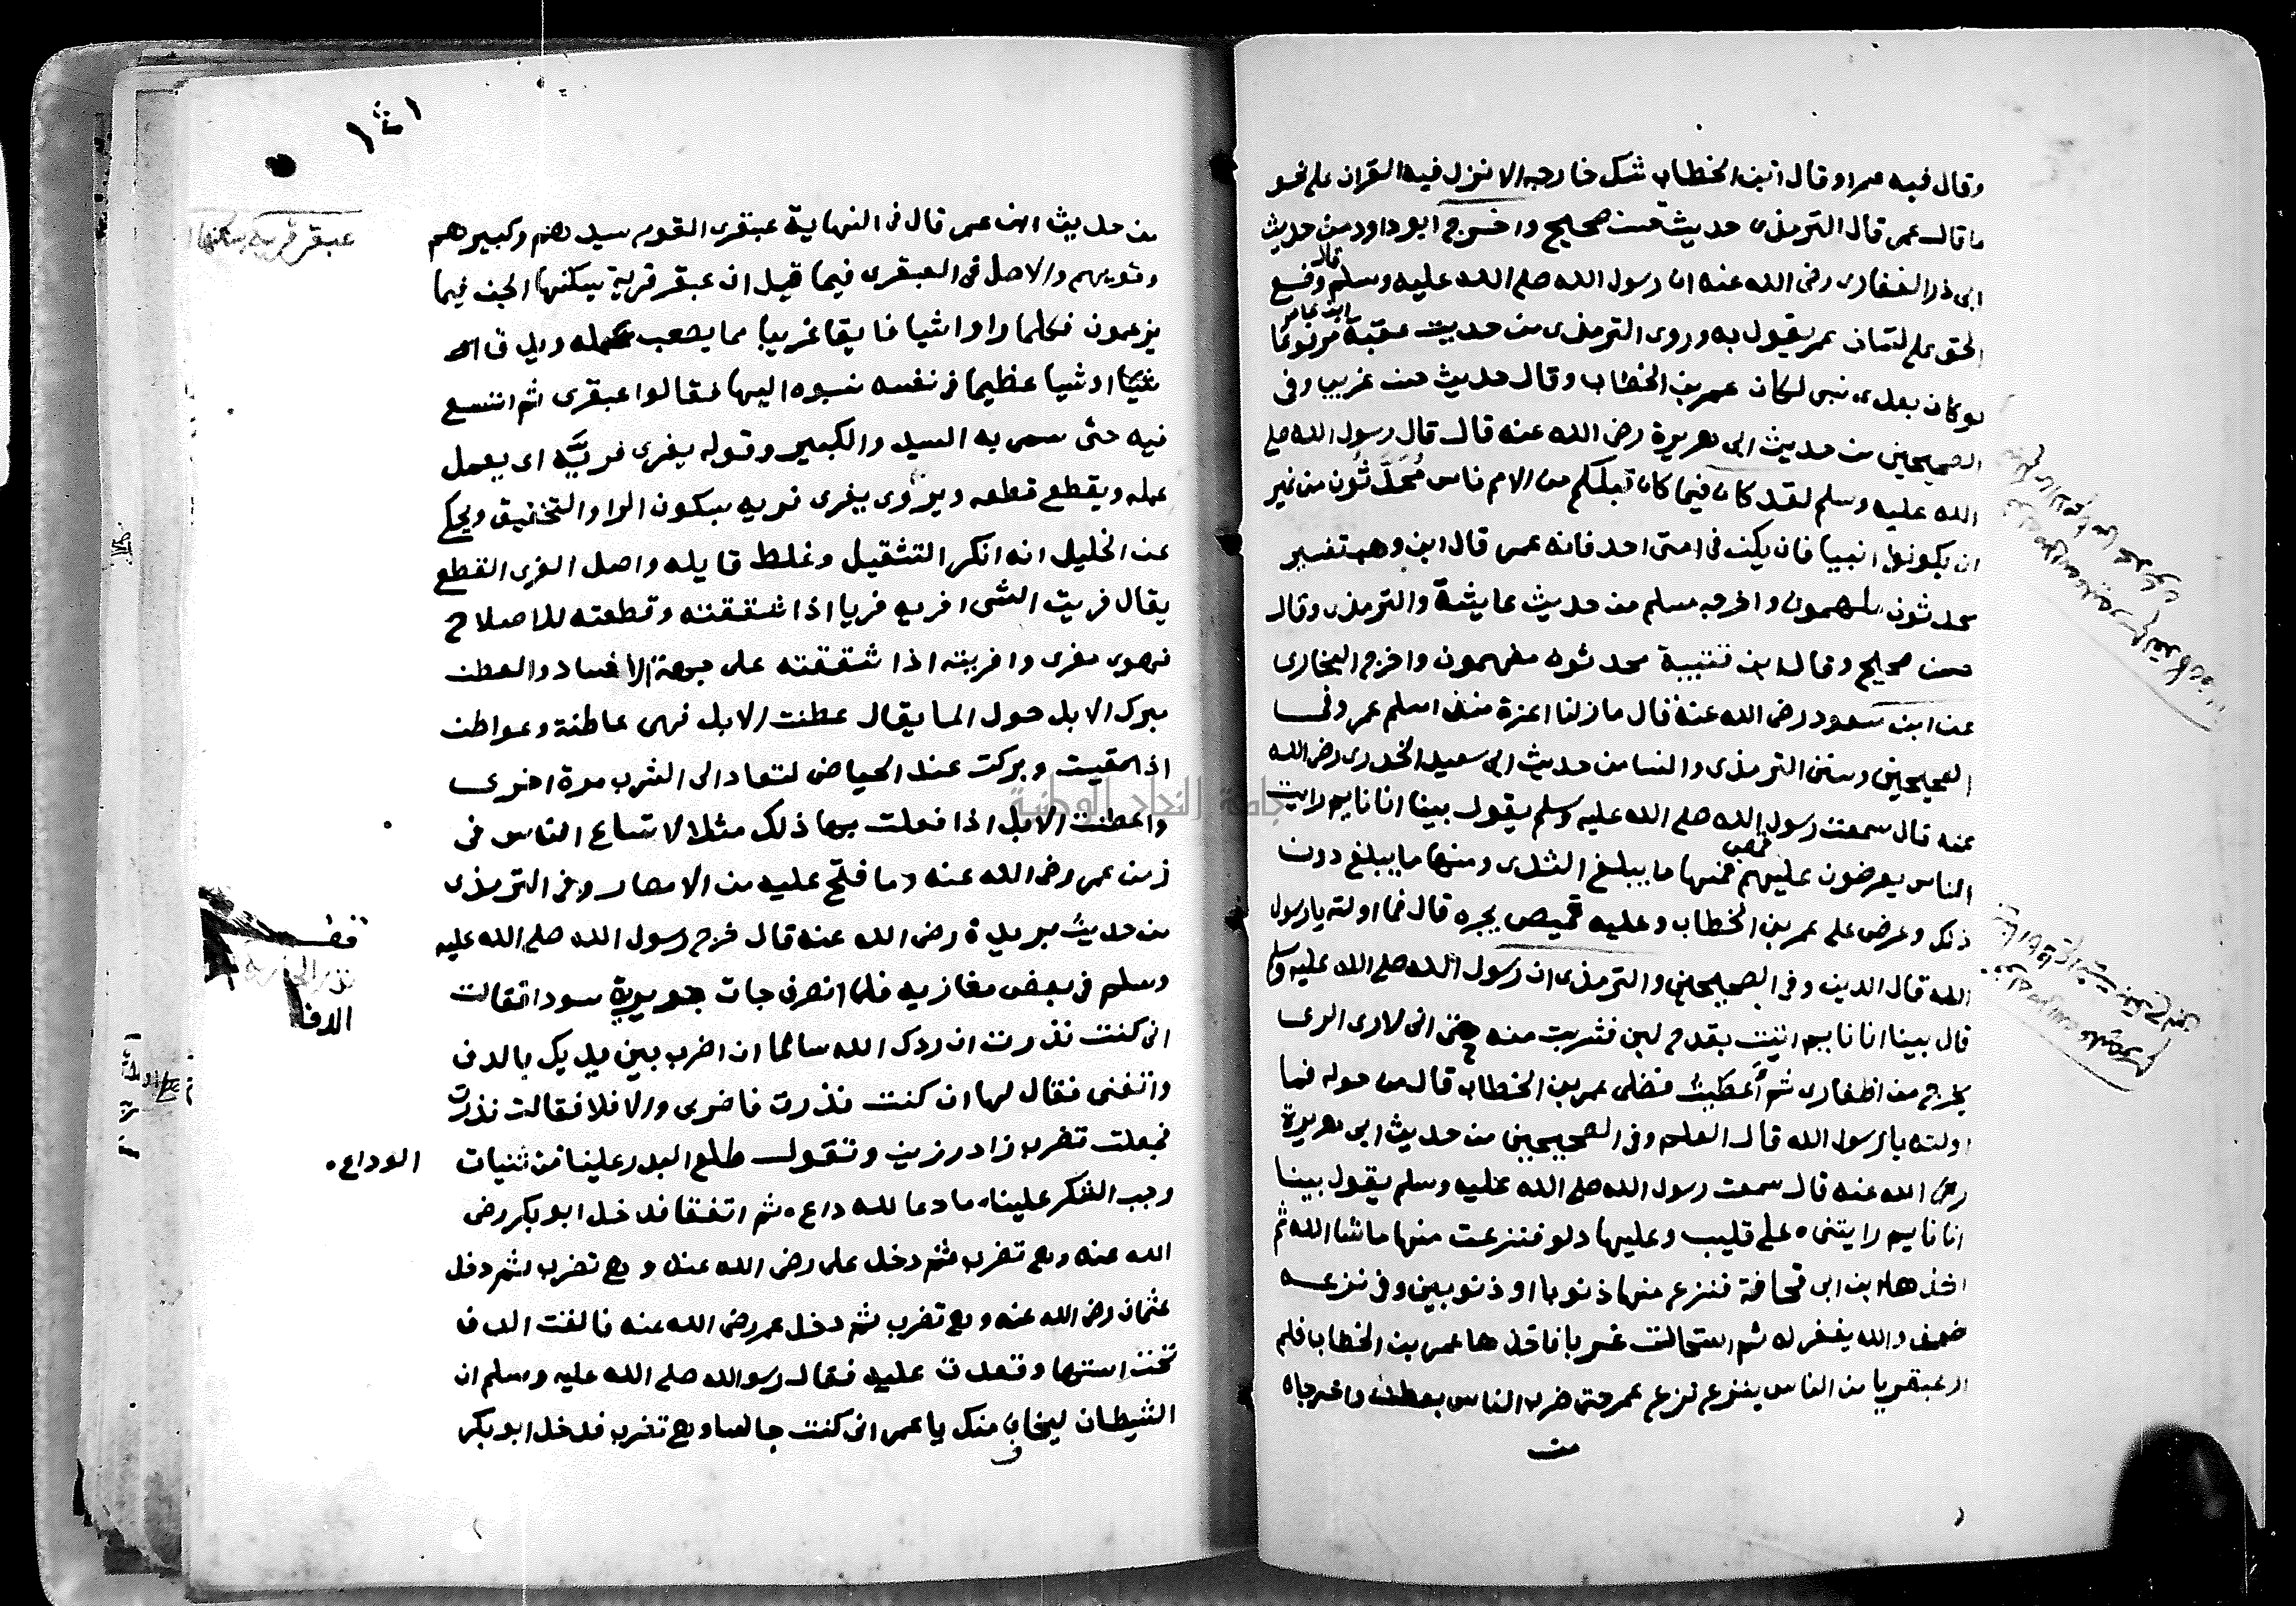 وقال فيه عمر او قال ابن الخطاب شك خارجه الا نزل فيه القران على نحو
ما قال عمر قال الترمذي حديث حسن صحيح واخرج ابو داود من حديث
ابى ذر الغفارى رضى الله عنه ان رسول الله صلى الله عليه وسلم قال وضع
الحق على لسان عمر يقول به وروى الترمذى من حديث عقبة ابن عامر مرفوعا
لو كان بعدى نبى لكان عمر بن الخطاب وقال حديث حسن غريب وفى
الصحيحين من حديث ابى هريرة رضى الله عنه قال قال رسول الله صلى
الله عليه وسلم لقد كان فيما كان قبلكم من الامم ناس مُحَدَّثون من غير
ان يكونوا انبيا فان يكن فى امتى احد فانه عمر قال ابن وهب تفسير
محدثون ملهمون واخرجه مسلم من حديث عايشة والترمذى وقال
حسن صحيح وقال ابن قتيبة محدثون مفهمون واخرج البخارى
عن ابن مسعود رضى الله عنه قال ما زلنا اعزة منذ اسلم عمر وفى
الصحيحين وسنن الترمذى والنسا من حديث ابى سعيد الخدرى رضى الله
عنه قال سمعت رسول الله صلى الله عليه وسلم يقول بينا انا نايم رايت
الناس يعرضون عليهم قمص فمنها ما يبلغ الثدى ومنها ما يبلغ دون
ذلك وعرض على عمر بن الخطاب وعليه قميص يجره قال فما اولته يا رسول
الله قال الدين وفى الصحيحين والترمذى ان رسول الله صلى الله عليه وسلم
قال بينا انا نايم اتيت بقدح لبن فشربت منه حتى انى لارى الرى
يخرج من اظفارى ثم اعطيت فضلى عمر بن الخطاب قال من حوله فما
اولته يا رسول الله قال العلم وفى الصحيحين من حديث ابى هريرة
رضى الله عنه قال سمعت رسول الله صلى الله عليه وسلم يقول بينا
انا نايم رايتنى على قليب وعليها دلو فنزعت منها ما شا الله ثم
اخذها ابن ابى قحافة فنزع منها ذنوبا او ذنوبين وفى نزعه
ضعف والله يغفر له ثم استحالت غربا فاخذها عمر بن الخطاب فلم
ار عبقريا من الناس ينزع نزع عمر حتى ضرب الناس بعطن واخرجاه
من
من حديث ابن عمر قال فى النهاية عبقرى القوم سيدهم وكبيرهم
وقويهم والاصل فى العبقرى فيما قيل ان عبقر قرية يسكنها الجن فيما
يزعمون فكلما راوا شيا فايقا غريبا مما يصعب عمله ويدق او
شيا او شيا عظيما فى نفسه نسبوه اليها فقالوا عبقرى ثم اتسع
فيه حتى سمى به السيد والكبير وقوله يفرى فريَّه اى يعمل
عمله ويقطع قطعه ويروى يفرى فريه بسكون الرا والتخفيف ويحكى
عن الخليل انه انكر التثقيل وغلط قايله واصل الفرى القطع
يقال فريت الشى افريه فريا اذا شققته وقطعته للاصلاح
فهوى مفرى وافريته اذا شققته على جهة الافساد والعطن
مبرك الابل حول الما يقال عطنت الابل فهى عاطنة وعواطن
اذا سقيت وبركت عند الحياض لتعاد الى الشرب مرة اخرى
واعطنت الابل اذا فعلت بها ذلك مثلا لاتساع الناس فى
زمن عمر رضى الله عنه وما فتح عليه من الامصار وفى الترمذى
من حديث بريدة رضى الله عنه قال خرج رسول الله صلى الله عليه
وسلم فى بعض مغازيه فلما انصرف جات جويرية سودا فقالت
انى كنت نذرت ان ردك الله سالما ان اضرب بين يديك بالدف
واتغنى فقال لها ان كنت نذرت فاضربى والا فلا فقالت نذرت
فجعلت تضرب زاد رزين وتقول طلع البدر علينا من ثنيات الوداع
وجب الشكر علينا ما دعا لله داع ثم اتفقا فدخل ابو بكر رضى
الله عنه وهى تضرب ثم دخل على رضى الله عنه وهى تضرب ثم دخل
عثمان رضى الله عنه وهى تضرب ثم دخل عمر رضى الله عنه فالقت الدف
تحت استها وقعدت عليه فقال رسول الله صلى الله عليه وسلم ان
الشيطان ليخاف منك يا عمر انى كنت جالسا وهى تضرب فدخل ابو بكر
عبقر قرية يسكنها
الدف
جامعة النجاح الوطنية